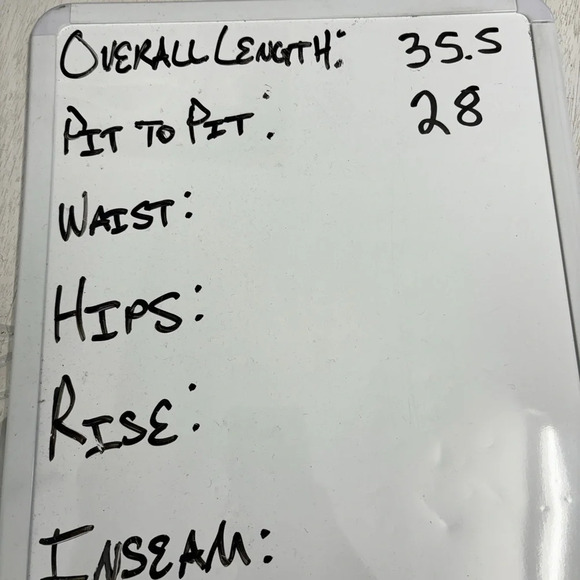 OVERALL LENGTH: 35.5
PIT TO PIT: 28
WAIST:
HIPS:
RISE:
INSEAM: